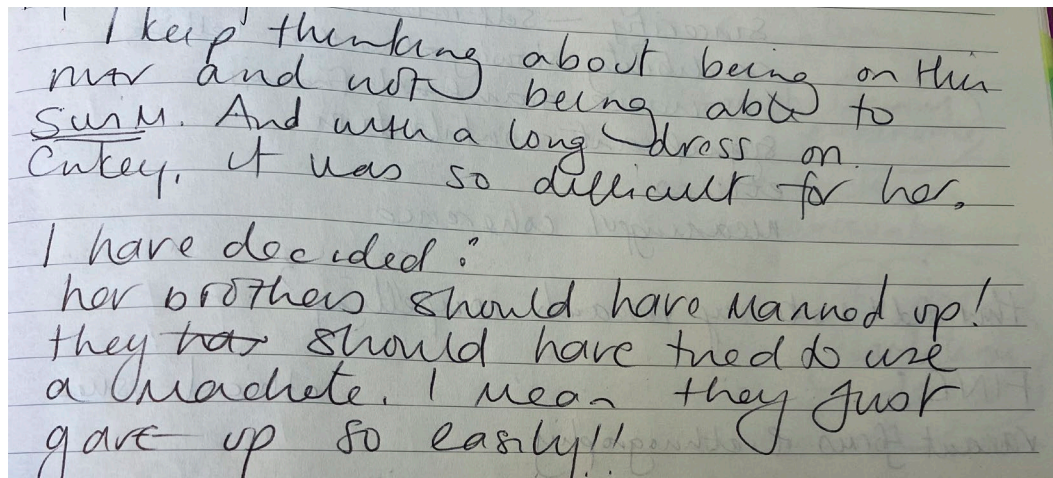 I keep thinking about being on this
river and not being able to
swim. And with a long dress on.
Cutey, it was so difficult for her.
I have decided:
her brothers should have manned up!
they has should have tried to use
a machete. I mean they just
gave up so easily!!